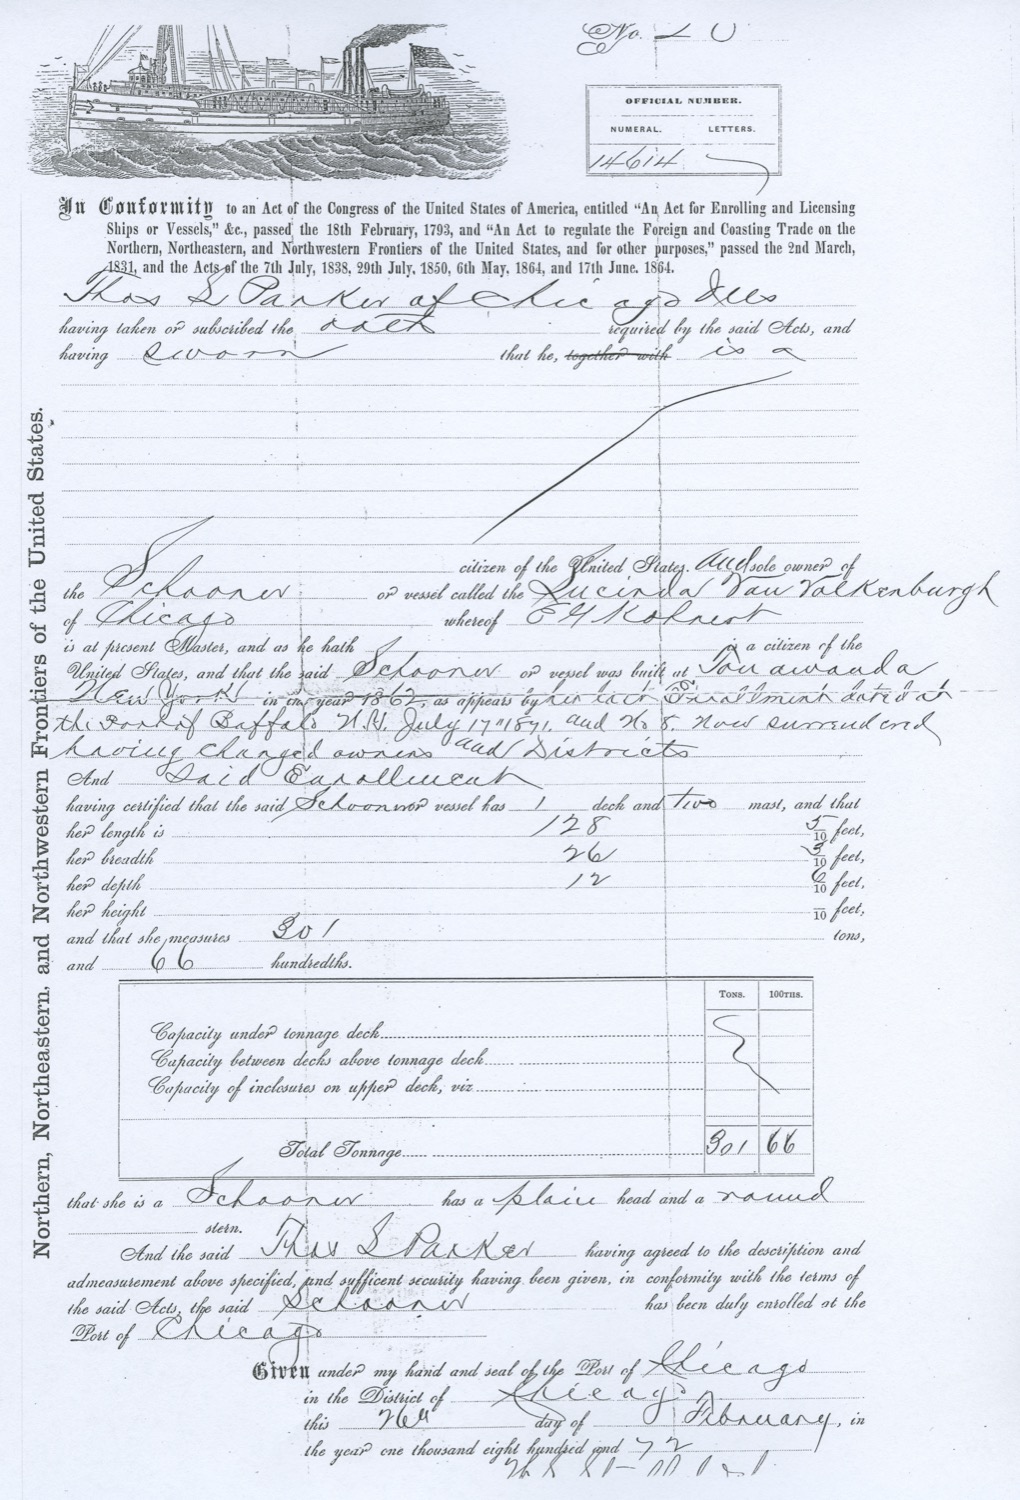 No.
OFFICIAL NUMBER.
NUMERAL. LETTERS.
14614
In Conformity to an Act of the Congress of the United States of America, entitled "An Act for Enrolling and Licensing
Ships or Vessels," &c., passed the 18th February, 1793, and "An Act to regulate the Foreign and Coasting Trade on the
Northern, Northeastern, and Northwestern Frontiers of the United States, and for other purposes," passed the 2nd March,
1831, and the Acts of the 7th July, 1838, 29th July, 1850, 6th May, 1864, and 17th June. 1864.
Thos S Parker of Chicago Ills
having taken or subscribed the oath required by the said Acts, and
having sworn that he, together with is a
citizen of the United States. and sole owner of
the Schooner or vessel called the Lucinda Van Valkenburgh
of Chicago whereof E G
is at present Master, and as he hath is a citizen of the
United States, and that the said Schooner or vessel was built at Tonawanda
New York in the year 1862, as appears by her last P. Enrollment dated at
the Port of Buffalo N.Y. July 17" 1871. and No 8. Now surrendered
having changed owners and Districts
And Said Enrollment
having certified that the said Schooner or vessel has 1 deck and two mast, and that
her length is 128 5/10 feet,
her breadth 26 3/10 feet,
her depth 12 6/10 feet,
her height /10 feet,
and that she measures 301 tons,
and 66 hundredths.
TONS. 100THS.
Capacity under tonnage deck
Capacity between decks above tonnage deck
Capacity of inclosures on upper deck, viz
Total Tonnage 301 66
that she is a Schooner has a plain head and a round
stern.
And the said Thos S Parker having agreed to the description and
admeasurement above specified, and sufficent security having been given, in conformity with the terms of
the said Acts, the said Schooner has been duly enrolled at the
Port of Chicago
Given under my hand and seal of the Port of Chicago
in the District of Chicago
this 26th day of February, in
the year one thousand eight hundred and 72
Northern, Northeastern, and Northwestern Frontiers of the United States.